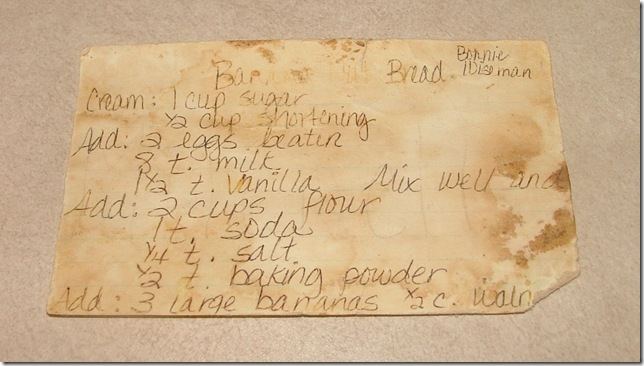 Bonnie
Wiseman
Ban Bread
Cream: 1 cup sugar
1/2 cup shortening
Add: 2 eggs beaten
8 t. milk
1 1/2 t. vanilla Mix well and
Add: 2 cups flour
1 t. soda
1/4 t. salt
1/2 t. baking powder
Add: 3 large bananas 1/2 c. waln